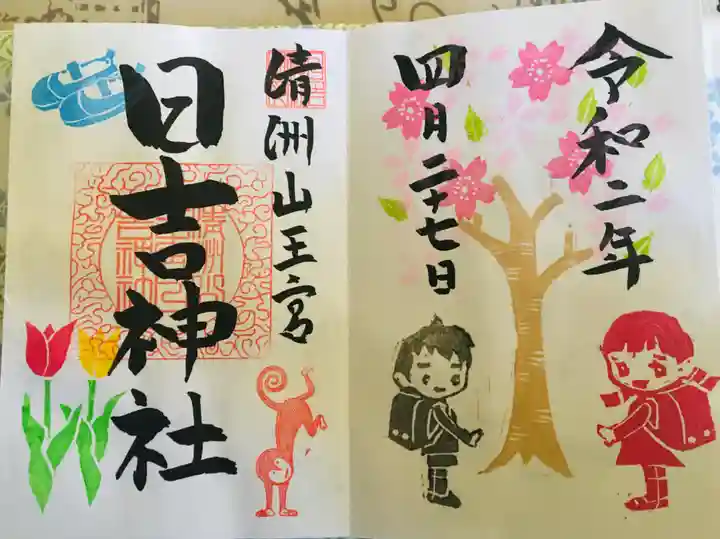 令和二年
四月二十七日
清洲山王宮
日吉神社